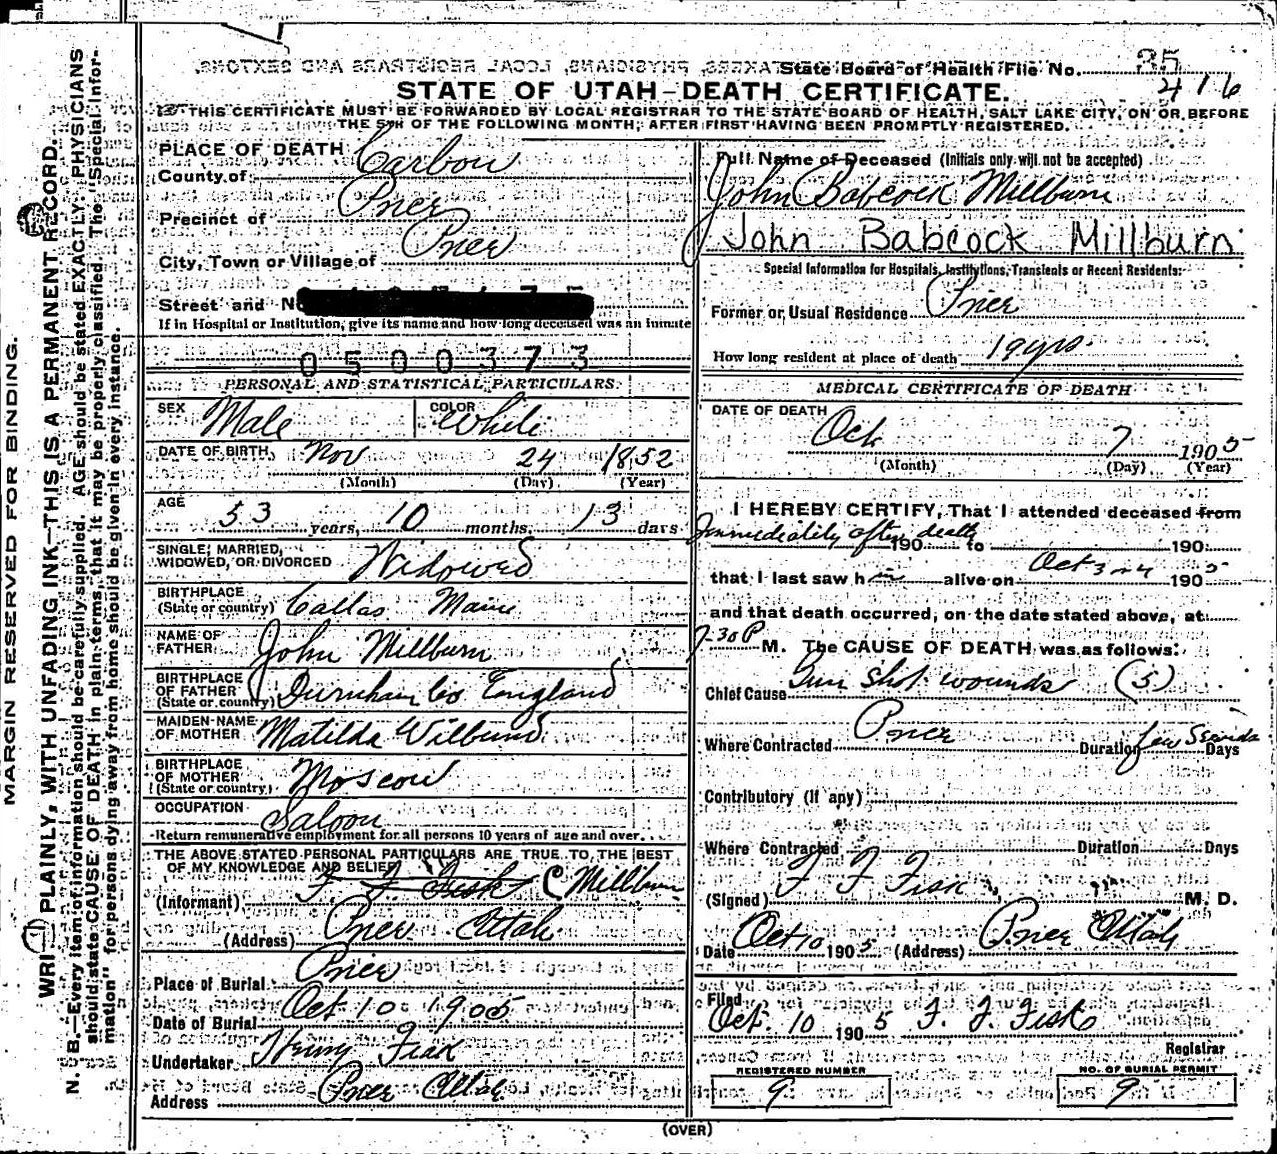 State Board of Health File No. 35
416
STATE OF UTAH—DEATH CERTIFICATE.
THIS CERTIFICATE MUST BE FORWARDED BY LOCAL REGISTRAR TO THE STATE BOARD OF HEALTH, SALT LAKE CITY, ON OR BEFORE
THE 5TH OF THE FOLLOWING MONTH, AFTER FIRST HAVING BEEN PROMPTLY REGISTERED.
MARGIN RESERVED FOR BINDING.
WRITE PLAINLY, WITH UNFADING INK—THIS IS A PERMANENT RECORD.
N. B.—Every item of information should be carefully supplied. AGE should be stated EXACTLY. PHYSICIANS
should state CAUSE OF DEATH in plain terms, that it may be properly classified. The "Special Infor-
mation" for persons dying away from home should be given in every instance.
PLACE OF DEATH
County of Carbon
Precinct of Price
City, Town or Village of Price
Street and No
If in Hospital or Institution, give its name and how long deceased was an inmate
0500373
PERSONAL AND STATISTICAL PARTICULARS
SEX Male COLOR White
DATE OF BIRTH, Nov 24 1852
(Month) (Day) (Year)
AGE 53 years, 10 months, 13 days
SINGLE, MARRIED,
WIDOWED, OR DIVORCED Widowed
BIRTHPLACE
(State or country) Callas Maine
NAME OF
FATHER John Millburn
BIRTHPLACE
OF FATHER
(State or country) Durnham Co England
MAIDEN NAME
OF MOTHER Matilda Wilbund
BIRTHPLACE
OF MOTHER
(State or country) Moscow
OCCUPATION Saloon
Return remunerative employment for all persons 10 years of age and over.
THE ABOVE STATED PERSONAL PARTICULARS ARE TRUE TO THE BEST
OF MY KNOWLEDGE AND BELIEF
(Informant) F. F. Fisk C Millburn
(Address) Price Utah
Place of Burial Price
Date of Burial Oct 10 1905
Undertaker Henry Fisk
Address Price Utah
Full Name of Deceased (Initials only will not be accepted)
John Babcock Millburn
John Babcock Millburn
Special Information for Hospitals, Institutions, Transients or Recent Residents:
Former or Usual Residence Price
How long resident at place of death 19 yrs.
MEDICAL CERTIFICATE OF DEATH
DATE OF DEATH
Oct 7 1905
(Month) (Day) (Year)
I HEREBY CERTIFY, That I attended deceased from
Immediately after death 190 to 190
that I last saw h alive on Oct 3 1905
and that death occurred, on the date stated above, at
7-30 P M. The CAUSE OF DEATH was as follows:
Chief Cause Gun shot wounds (5)
Where Contracted Price Duration few Seconds Days
Contributory (if any)
Where Contracted Duration Days
(Signed) F F Fisk, M. D.
Date Oct 10 1905 (Address) Price Utah
Filed
Oct. 10 1905 F. F. Fisk
Registrar
REGISTERED NUMBER
9
NO. OF BURIAL PERMIT
9
(OVER)